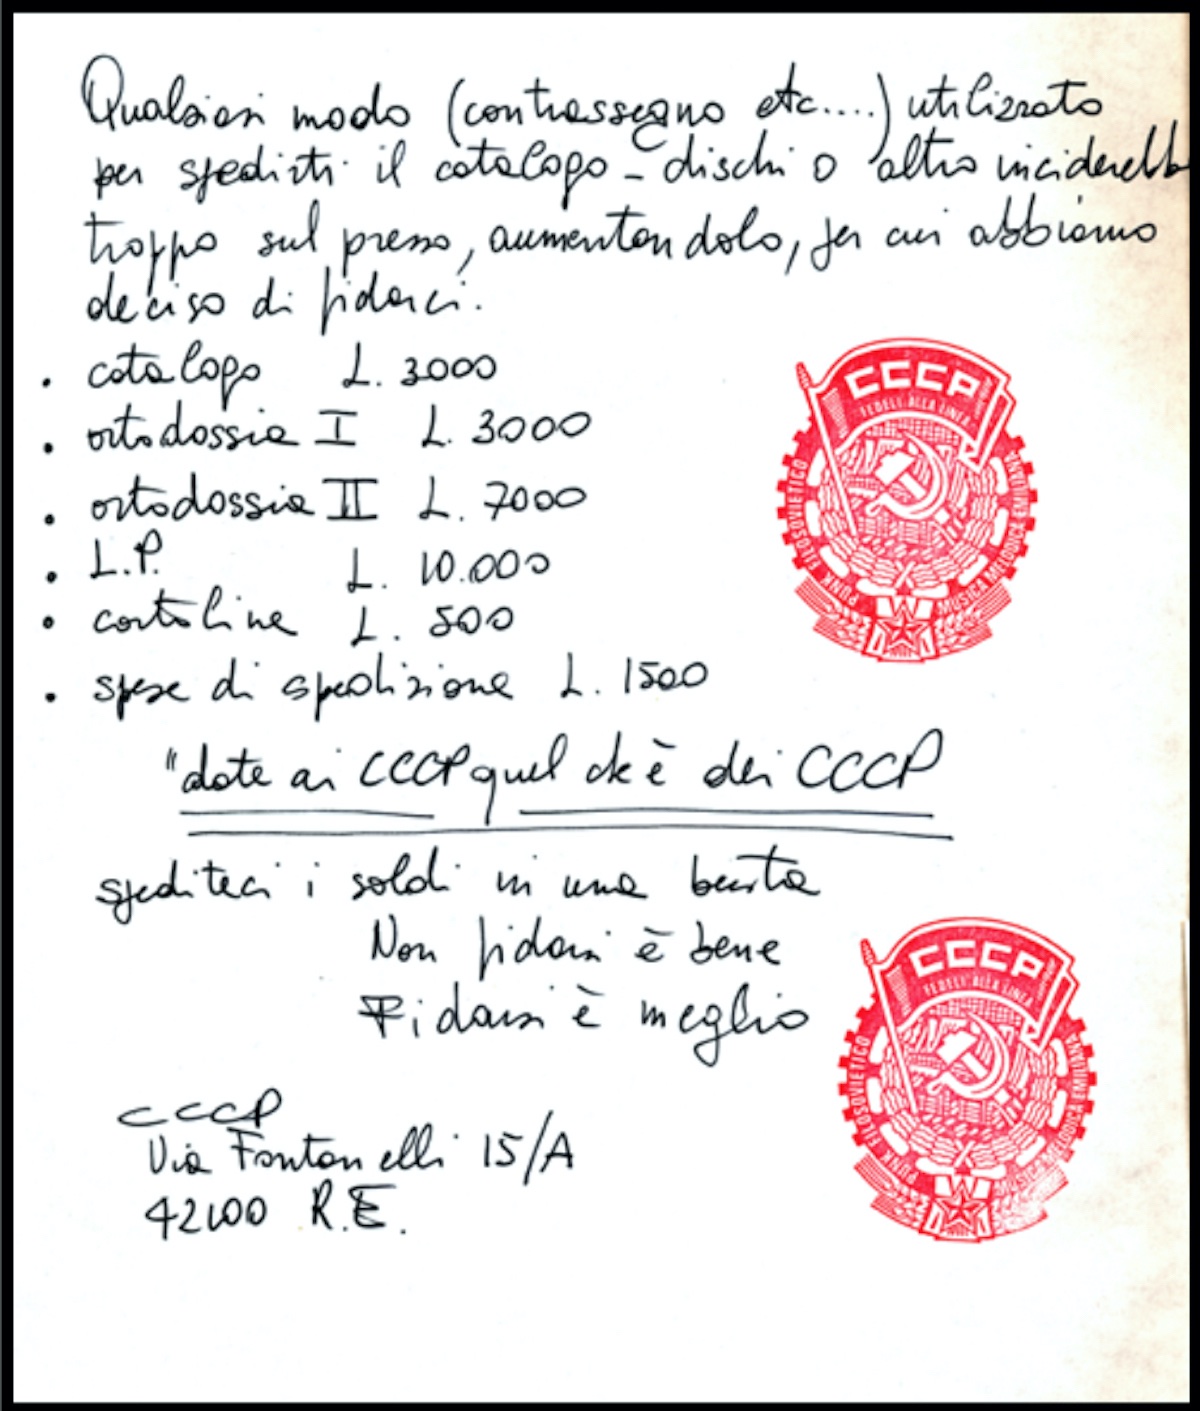 Qualsiasi modo (contrassegno etc....) utilizzato
per spedirti il catalogo - dischi o altro inciderebb
troppo sul prezzo, aumentandolo, per cui abbiamo
deciso di fidarci.
• catalogo L. 3000
• ortodossia I L. 3000
• ortodossia II L. 7000
• L.P. L. 10.000
• cartoline L. 500
• spese di spedizione L. 1500
"date ai CCCP quel che è dei CCCP
spediteci i soldi in una busta
Non fidarsi è bene
Fidarsi è meglio
CCCP
Via Fontanelli 15/A
42100 R.E.
CCCP
FEDELI ALLA LINEA
PUNK FILOSOVIETICO
MUSICA MELODICA EMILIANA
CCCP
FEDELI ALLA LINEA
PUNK FILOSOVIETICO
MUSICA MELODICA EMILIANA